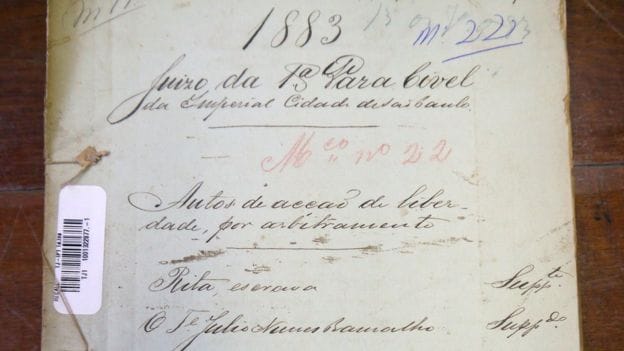 1883
nº 220
Juizo da 1ª Vara Civel
da Imperial Cidade de São Paulo
Mco nº 22
Autos de acção de liber-
dade, por arbitramento
Rita, escrava Suppte
O Te Julio Nunes Ramalho Suppdo